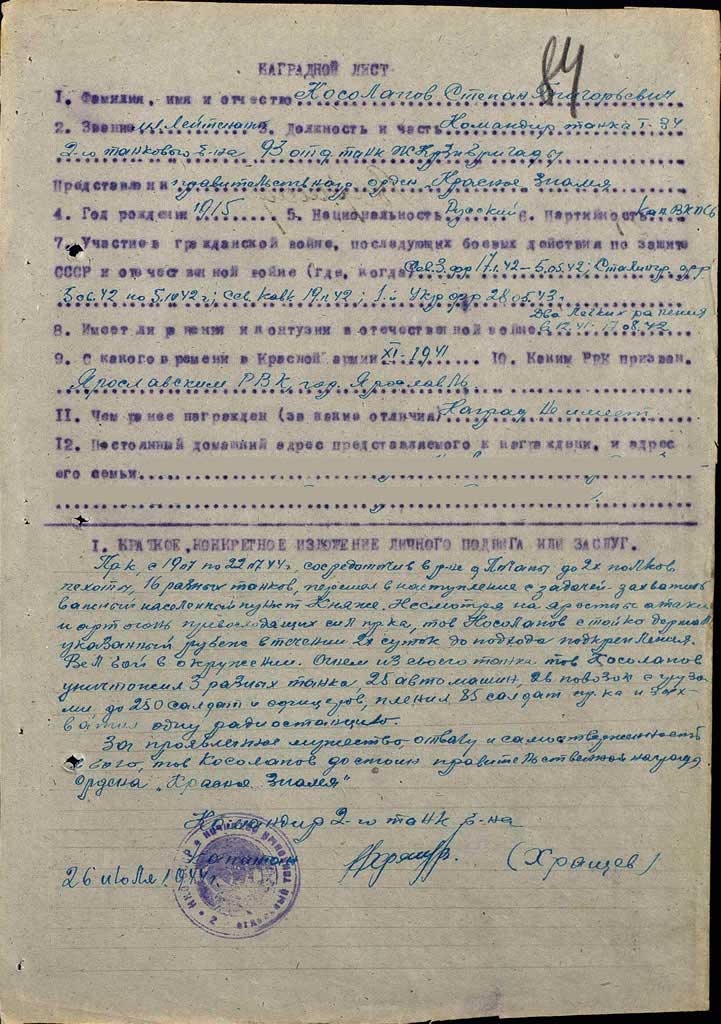 84
НАГРАДНОЙ ЛИСТ
1. Фамилия, имя и отчество Косолапов Степан Григорьевич
2. Звание мл. Лейтенант 3. Должность и часть Командир танка Т-34
2-го танкового б-на 93 отд танк Бригады
Представлен к правительствен. орден Красное Знамя
4. Год рождения 1915 5. Национальность Русский 6. Партийность Кан ВКП(б)
7. Участие в гражданской войне, последующих боевых действия по защите
СССР и отечественной войне (где, когда) Сев. З. фр 17.1.42 - 5.05.42; Сталингр. фр
5.06.42 по 5.10.42 г; Сев. Кавк 19.11.42; 1-й Укр фр 28.05.43 г
Два легких ранения
8. Имеет ли ранения и контузии в отечественной войне в 12.41. 17.08.42
9. С какого времени в Красной армии XI-1941 10. Каким РВК призван.
Ярославским РВК, гор. Ярославль
11. Чем ранее награжден (за какие отличия) Наград не имеет
12. Постоянный домашний адрес представляемого к награждени, и адрес
его семьи
I. КРАТКОЕ, КОНКРЕТНОЕ ИЗЛОЖЕНИЕ ЛИЧНОГО ПОДВИГА ИЛИ ЗАСЛУГ.
Пр-к, с 19.07 по 22.07.44 г, сосредоточив в р-не до 2х полков
пехоты, 16 разных танков, перешел в наступление с задачей - захватить
важный населенный пункт Княже. Несмотря на яростны атаки
и арт огонь превосходящих сил пр-ка, тов Косолапов стойко держал
указанный рубеж в течении 2х суток до подхода подкрепления.
Вел бой в окружении. Огнем из своего танка тов Косолапов
уничтожил 3 разных танка, 25 автомашин, 26 повозок с груза
ми, до 250 солдат и офицеров, пленил 85 солдат пр-ка и зах-
ватил одну радиостанцию.
За проявленное мужество, отвагу и самоотверженность
в бою, тов Косолапов достоин правительственной награды
Ордена „Красное Знамя"
Командир 2-го танк б-на
Капитан (Хращев)
26 июля 1944 г.